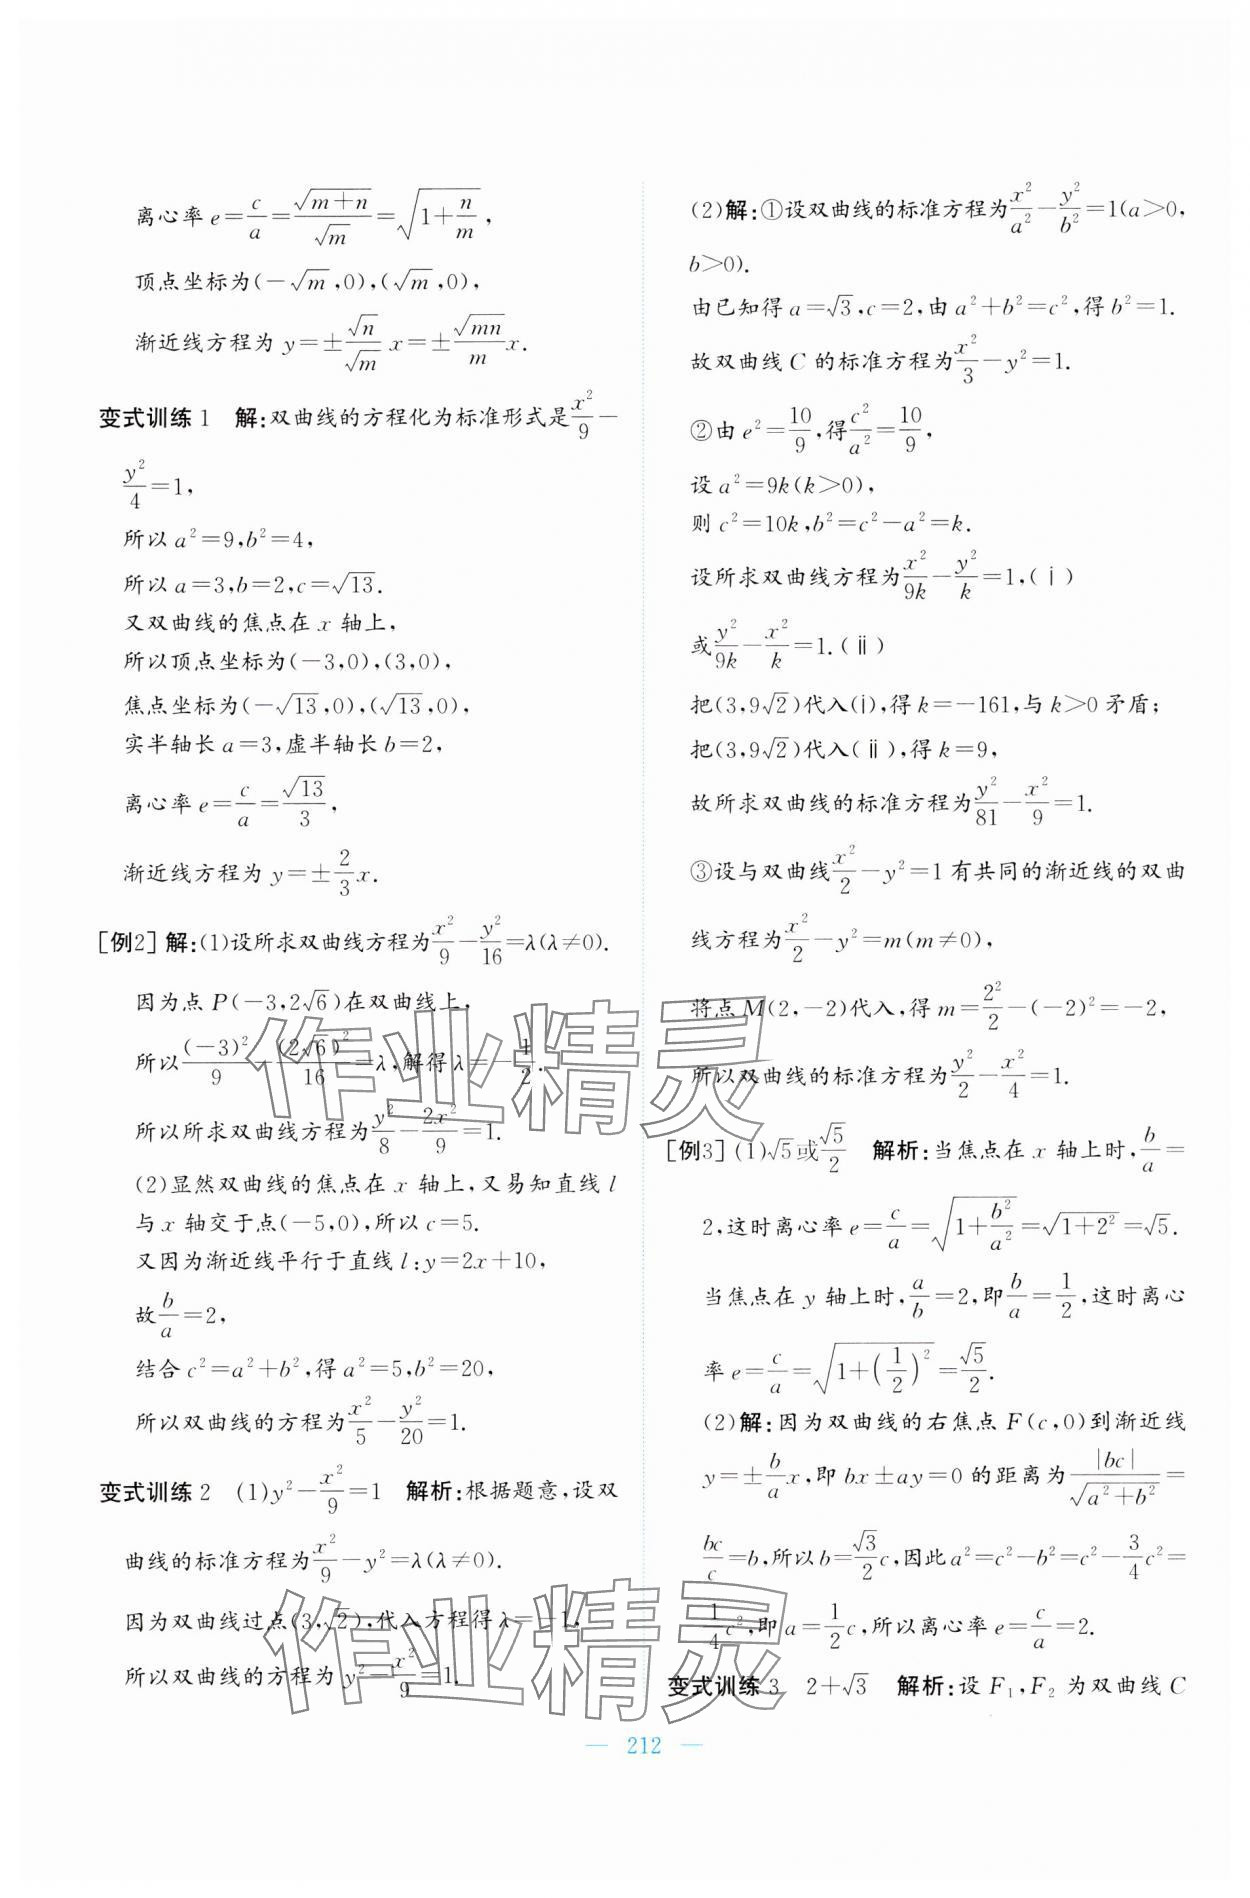 离心率 e=c/a=√(m+n)/√m=√(1+n/m),
顶点坐标为(-√m,0),(√m,0),
渐近线方程为 y=±(√n/√m)x=±(√mn/m)x.
变式训练1 解:双曲线的方程化为标准形式是x²/9-
y²/4=1,
所以 a²=9,b²=4,
所以 a=3,b=2,c=√13.
又双曲线的焦点在 x 轴上,
所以顶点坐标为(-3,0),(3,0),
焦点坐标为(-√13,0),(√13,0),
实半轴长 a=3,虚半轴长 b=2,
离心率 e=c/a=√13/3,
渐近线方程为 y=±(2/3)x.
[例2] 解:(1)设所求双曲线方程为x²/9-y²/16=λ(λ≠0).
因为点 P(-3,2√6)在双曲线上,
所以(-3)²/9-(2√6)²/16=λ,解得λ=-1/2.
所以所求双曲线方程为y²/8-2x²/9=1.
(2)显然双曲线的焦点在 x 轴上,又易知直线 l
与 x 轴交于点(-5,0),所以 c=5.
又因为渐近线平行于直线 l:y=2x+10,
故b/a=2,
结合 c²=a²+b²,得 a²=5,b²=20,
所以双曲线的方程为x²/5-y²/20=1.
变式训练2 (1)y²-x²/9=1 解析:根据题意,设双
曲线的标准方程为x²/9-y²=λ(λ≠0).
因为双曲线过点(3,√2),代入方程得λ=-1,
所以双曲线的方程为 y²-x²/9=1.
(2)解:①设双曲线的标准方程为x²/a²-y²/b²=1(a>0,
b>0).
由已知得 a=√3,c=2,由 a²+b²=c²,得 b²=1.
故双曲线 C 的标准方程为x²/3-y²=1.
②由 e²=10/9,得c²/a²=10/9,
设 a²=9k(k>0),
则 c²=10k,b²=c²-a²=k.
设所求双曲线方程为x²/9k-y²/k=1,(ⅰ)
或y²/9k-x²/k=1.(ⅱ)
把(3,9√2)代入(ⅰ),得 k=-161,与 k>0 矛盾;
把(3,9√2)代入(ⅱ),得 k=9,
故所求双曲线的标准方程为y²/81-x²/9=1.
③设与双曲线x²/2-y²=1 有共同的渐近线的双曲
线方程为x²/2-y²=m(m≠0),
将点 M(2,-2)代入,得 m=2²/2-(-2)²=-2,
所以双曲线的标准方程为y²/2-x²/4=1.
[例3] (1)√5或√5/2 解析:当焦点在 x 轴上时,b/a=
2,这时离心率 e=c/a=√(1+b²/a²)=√(1+2²)=√5.
当焦点在 y 轴上时,a/b=2,即b/a=1/2,这时离心
率 e=c/a=√(1+(1/2)²)=√5/2.
(2)解:因为双曲线的右焦点 F(c,0)到渐近线
y=±(b/a)x,即 bx±ay=0 的距离为|bc|/√(a²+b²)=
bc/c=b,所以 b=(√3/2)c,因此 a²=c²-b²=c²-(3/4)c²=
(1/4)c²,即 a=(1/2)c,所以离心率 e=c/a=2.
变式训练3 2+√3 解析:设 F₁,F₂ 为双曲线 C
— 212 —
作业精灵
作业精灵